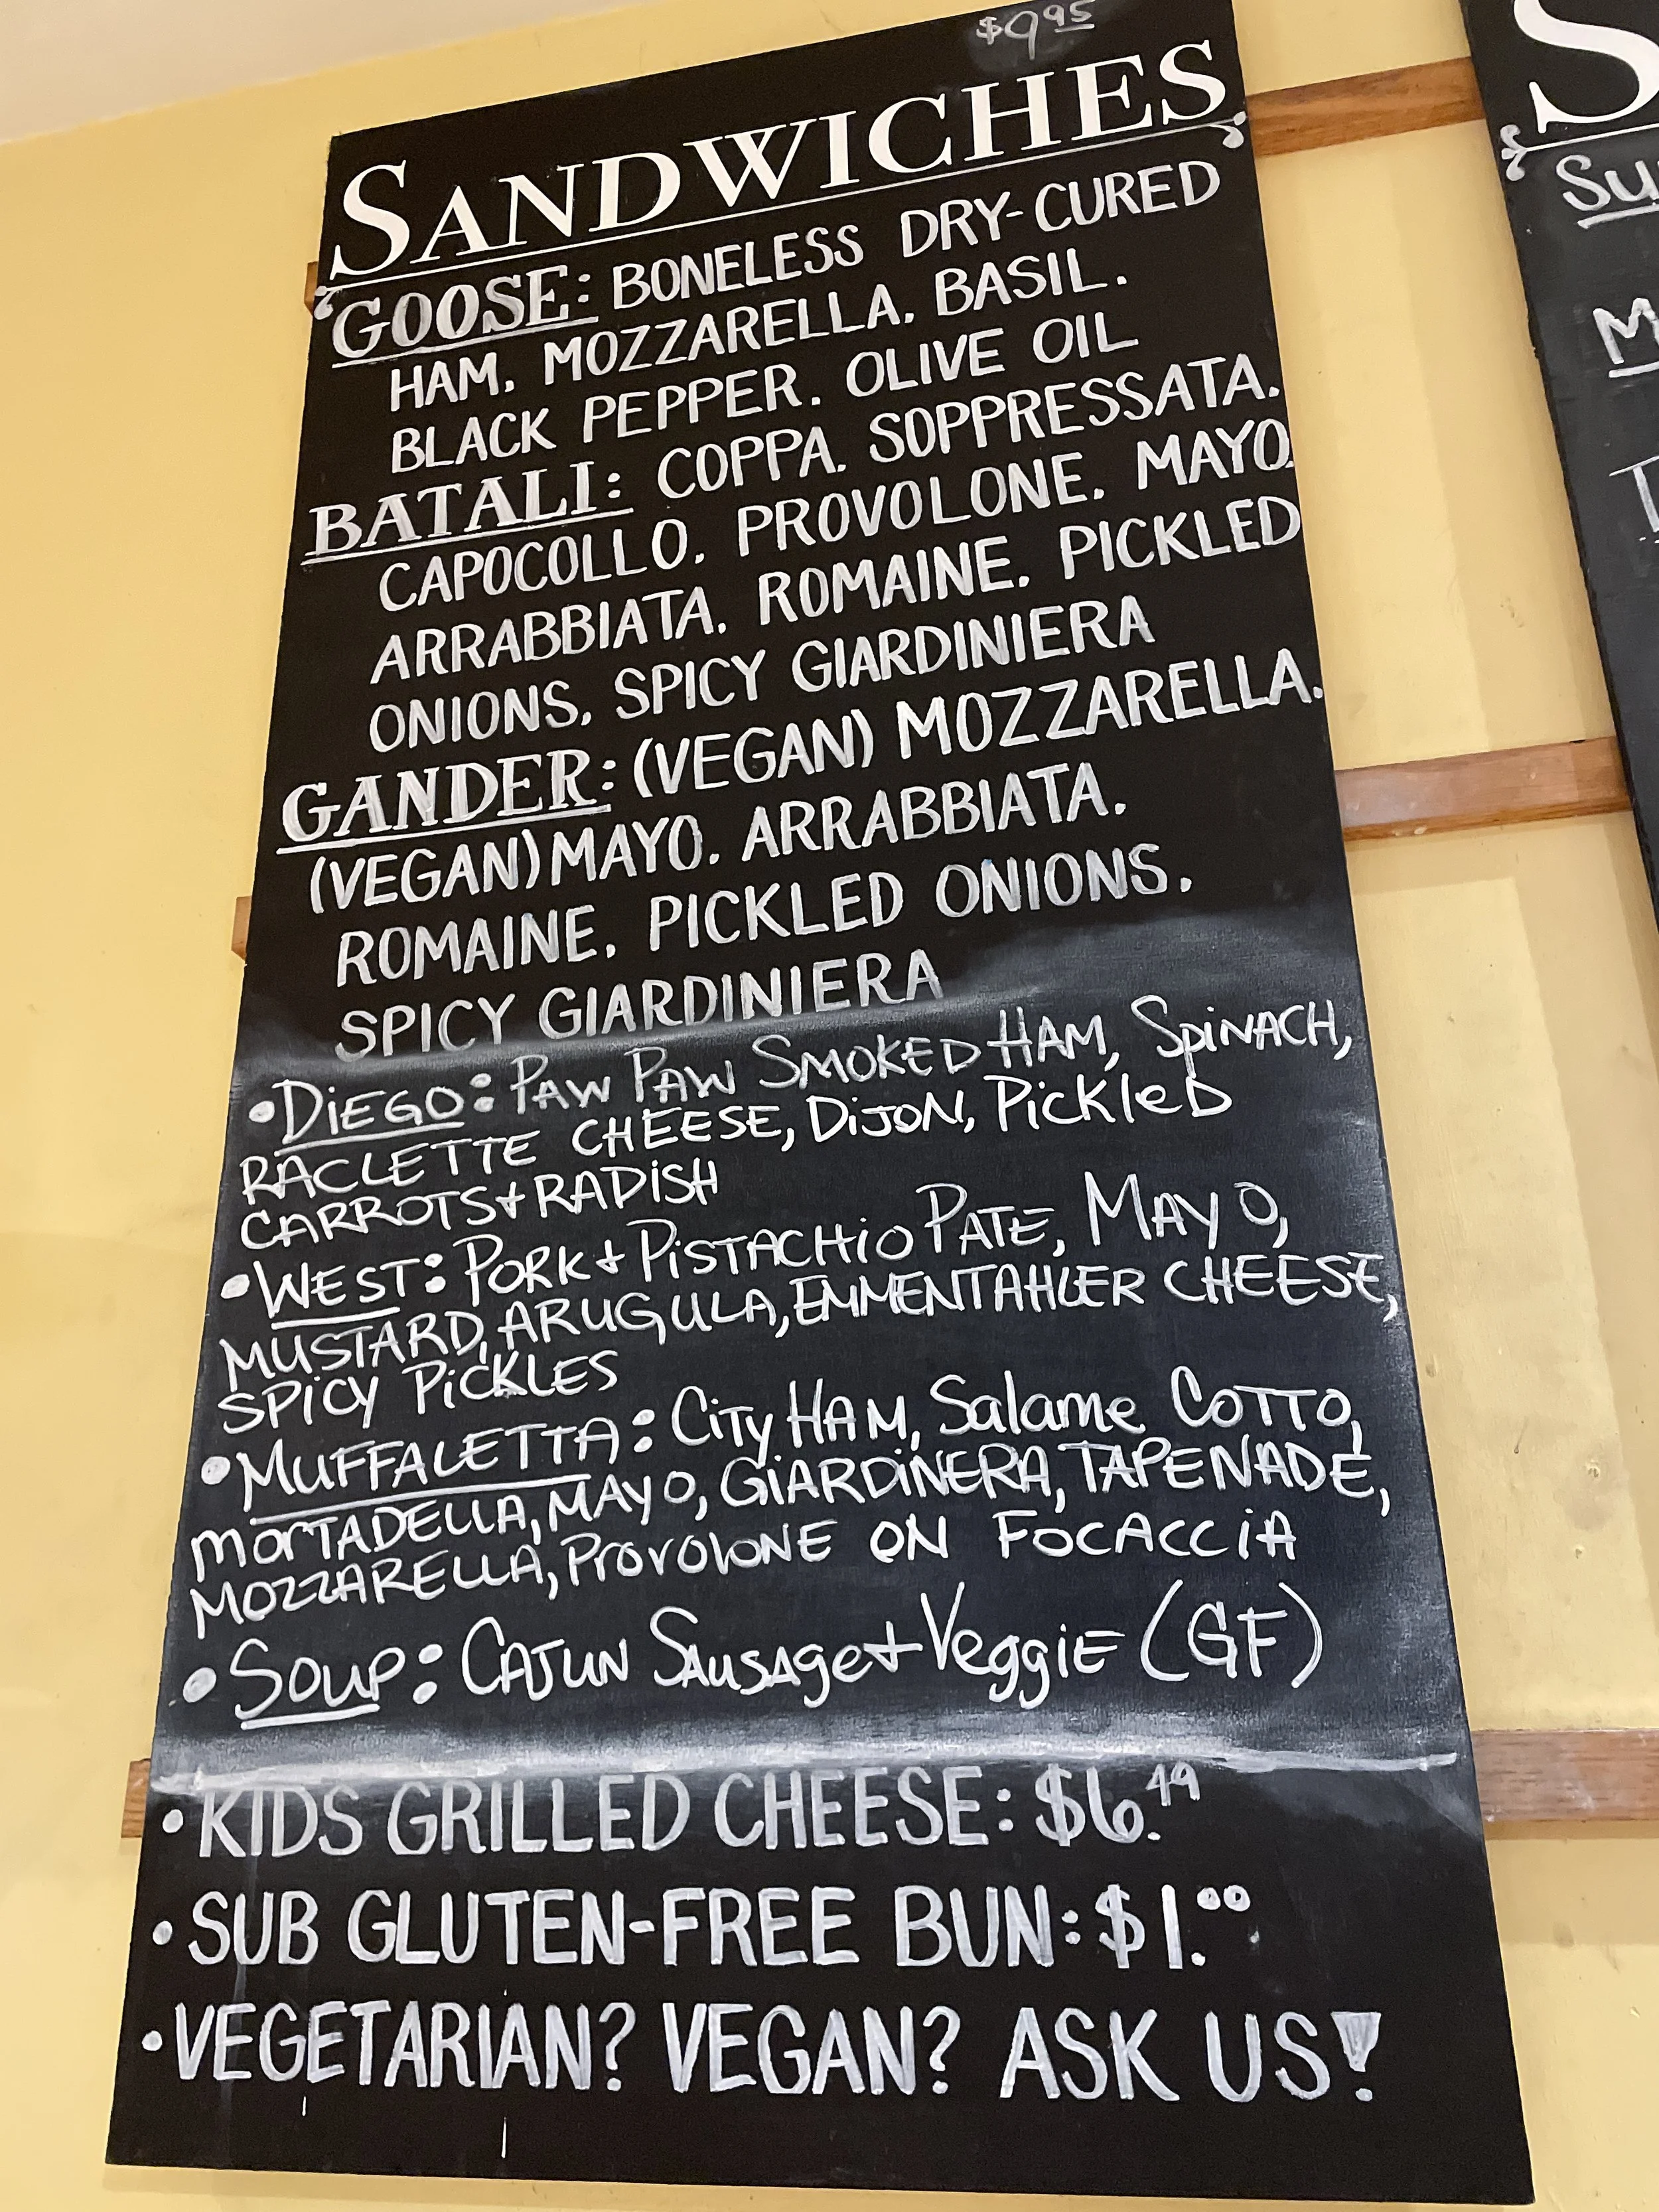 $9.95
SANDWICHES
GOOSE: BONELESS DRY-CURED
HAM. MOZZARELLA. BASIL.
BLACK PEPPER. OLIVE OIL
BATALI: COPPA. SOPPRESSATA.
CAPOCOLLO. PROVOLONE. MAYO.
ARRABBIATA. ROMAINE. PICKLED
ONIONS. SPICY GIARDINIERA
GANDER: (VEGAN) MOZZARELLA.
(VEGAN) MAYO. ARRABBIATA.
ROMAINE. PICKLED ONIONS.
SPICY GIARDINIERA
•DiEGO: PAW PAW SMOKED HAM, SpiNACH,
RACLETTE CHEESE, DiJON, PickleD
CARROTS + RADiSH
•WEST: PORK + PiSTACHiO PATE, MAYO,
MUSTARD, ARUGULA, EMMENTAHLER CHEESE,
SPiCY PiCKLES
•MUFFALETTA: CiTy HAM, Salame COTTO,
MORTADELLA, MAYO, GiARDiNERA, TAPENADE,
MOZZARELLA, PROVOLONE ON FOCACCiA
•Soup: CAJUN SAUSAge + VeggiE (GF)
•KIDS GRILLED CHEESE: $6.49
•SUB GLUTEN-FREE BUN: $1.00
•VEGETARIAN? VEGAN? ASK US!
S
Su
M